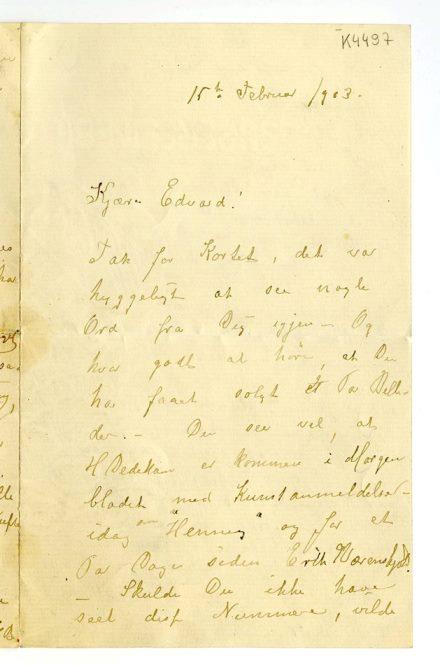 K4497
15th Februar 1903.
Kjære Edvard!
Tak for Kortet, det var
hyggeligt at see nogle
Ord fra Dig igjen – Og
hvor godt at høre, at Du
har faaet solgt et Par Billi-
der. – Du seer vel, at
H Dedekam er kommen i Morgen
bladet med Kunstanmeldelser –
idag om "Henning" og for et
Par Dage siden Erik Werenskjold.
– Skulde Du ikke have
seet disse Nummere, vilde